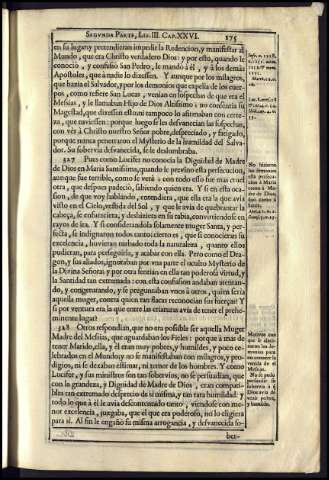 SEGVNDA PARTE, LIB. III. CAP. XXVI. 175
en su lugar, y pretendieran impedir la Redencion, y manifestar al
Mundo, que era Christo verdadero Dios: y por esto, quando le
conoció, y confesó San Pedro, le mandó à él, y à los demàs
Apostoles, que à nadie lo dixessen. Y aunque por los milagros,
que hazia el Salvador, y por los demonios que expelia de los cuer-
pos, como refiere San Lucas, venian en sospechas de que era el
Messias, y le llamavan Hijo de Dios Altissimo: no consentia su
Magestad, que dixessen esto, ni tampoco lo afirmavan con certe-
za, que tuviessen: porque luego se les desvanecian las sospechas,
con vèr à Christo nuestro Señor pobre, despreciado, y fatigado,
porque nunca penetraron el Mysterio de la humildad del Salva-
dor. Su sobervia desvanecida, se lo deslumbrava.
327 Pues como Lucifer no conocia la Dignidad de Madre
de Dios en Maria Santissima, quando le previno esta persecucion,
aunque fue terrible, como se verà: con todo esso fue mas cruel
otra, que despues padeciò, sabiendo quien era. Y si en esta oca-
sion, de que voy hablando, entendiera, que ella era la que avia
visto en el Cielo, vestida del Sol, y que le avia de quebrantar la
cabeça, se enfureciera, y deshiziera en su rabia, convirtiendose en
rayos de ira. Y si considerandola solamente muger Santa, y per-
fecta, se indignaron todos tanto: cierto es, que si conocieran su
excelencia, huvieran turbado toda la naturaleza, quanto ellos
pudieran, para perseguirla, y acabar con ella. Pero como el Dra-
gon, y sus aliados, ignoraban por vna parte el oculto Mysterio de
la Divina Señora: y por otra sentian en ella tan poderosa virtud, y
la Santidad tan extremada: con esta confusion andaban atentan-
do, y conjeturando, y se preguntaban vnos à otros, quien seria
aquella muger, contra quien tan flacas reconocian sus fuerças? Y
si por ventura era la que entre las criaturas avia de tener el prehe-
minente lugar?
328 Otros respondian, que no era possible ser aquella Muger
Madre del Messias, que aguardaban los Fieles: porque à mas de
tener Marido, ella, y èl eran muy pobres, y humildes, y poco ce-
lebrados en el Mundo, y no se manifestaban con milagros, y pro-
digios, ni se dexaban estimar, ni temer de los hombres. Y como
Lucifer, y sus ministros son tan sobervios, no se persuadian, que
con la grandeza, y Dignidad de Madre de Dios, eran compati-
bles tan extremado desprecio de sì misma, y tan rara humildad: y
todo lo que à èl le avia descontentado tanto, viendose con me-
nor excelencia, juzgaba, que el que era poderoso, no lo eligiera
para sì. Al fin le engañò su misma arrogancia, y desvanecida so-
ber-